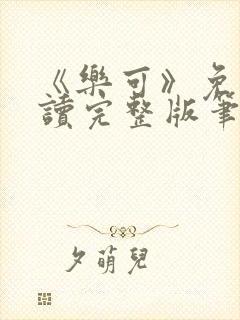 《樂可》免
讀完整版筆
夕萌兒